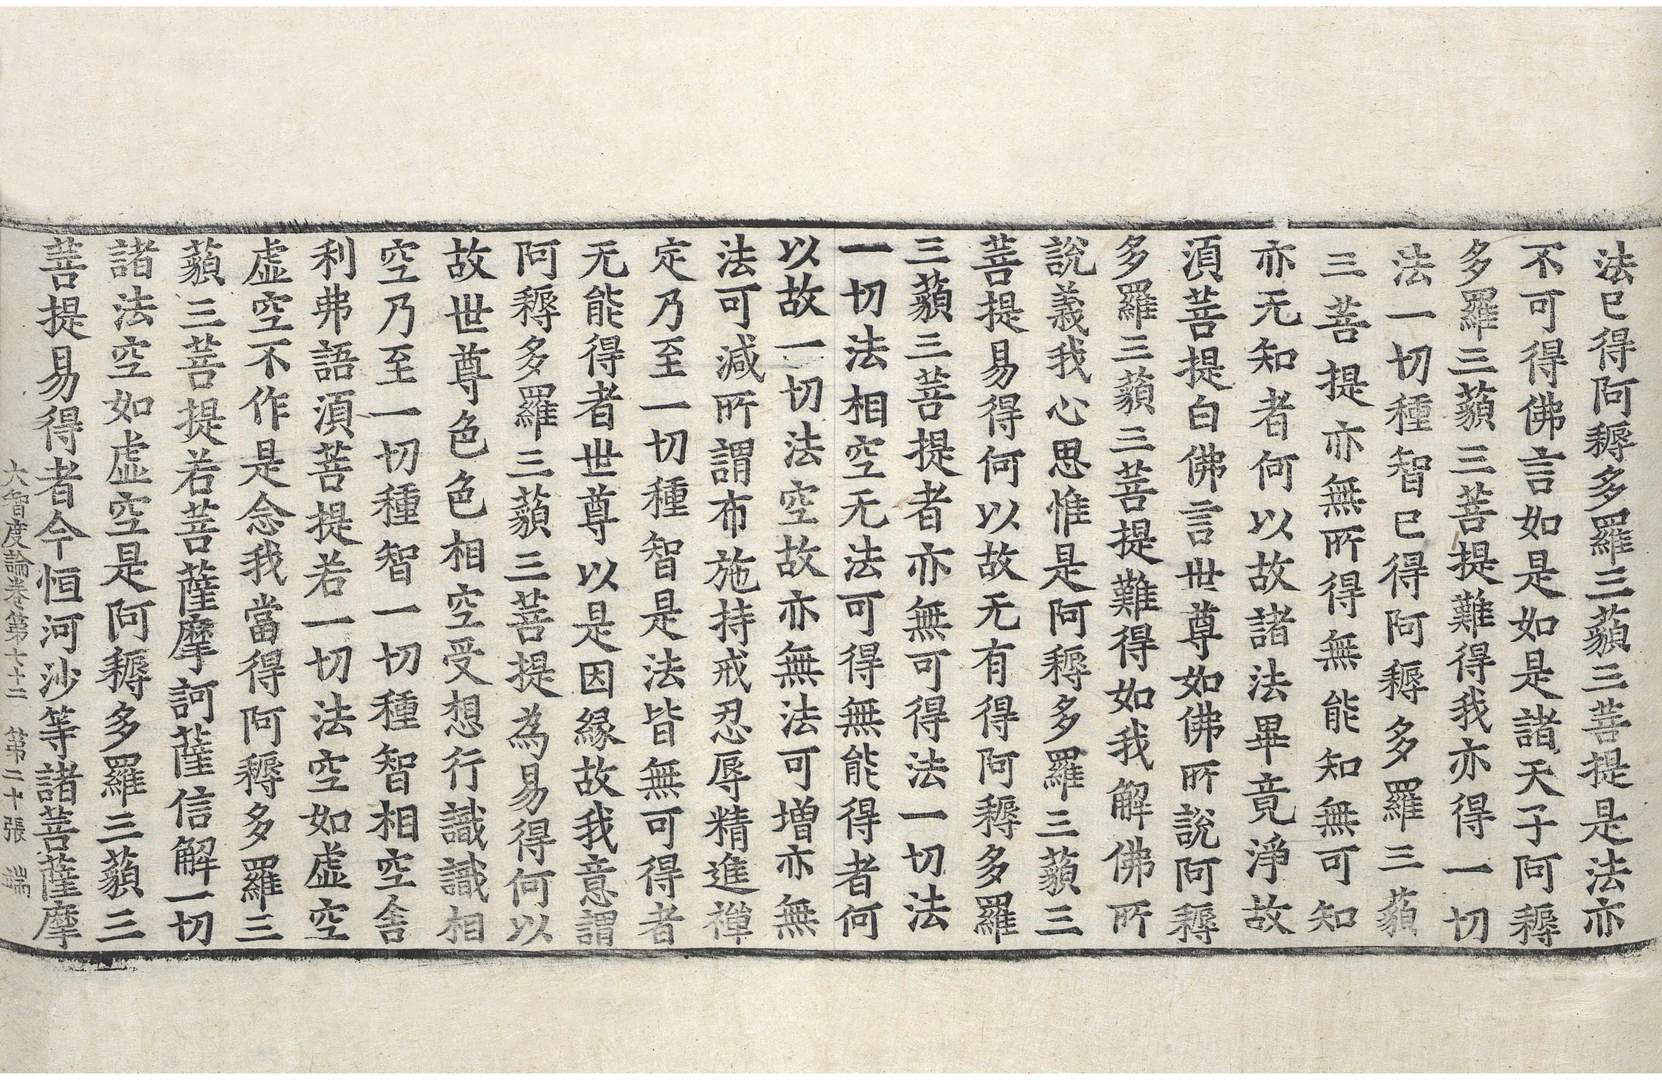 法已得阿耨多羅三藐三菩提是法亦
不可得佛言如是如是諸天子阿耨
多羅三藐三菩提難得我亦得一切
法一切種智已得阿耨多羅三藐
三菩提亦無所得無能知無可知
亦无知者何以故諸法畢竟淨故
湏菩提白佛言世尊如佛所說阿耨
多羅三藐三菩提難得如我解佛所
說義我心思惟是阿耨多羅三藐三
菩提易得何以故无有得阿耨多羅
三藐三菩提者亦無可得法一切法
一切法相空无法可得無能得者何
以故一切法空故亦無法可增亦無
法可減所謂布施持戒忍辱精進禪
定乃至一切種智是法皆無可得者
无能得者世尊以是因緣故我意謂
阿耨多羅三藐三菩提為易得何以
故世尊色色相空受想行識識相
空乃至一切種智一切種智相空舍
利弗語湏菩提若一切法空如虛空
虛空不作是念我當得阿耨多羅三
藐三菩提若菩薩摩訶薩信解一切
諸法空如虛空是阿耨多羅三藐三
菩提易得者今恒河沙等諸菩薩摩
大智度論卷第七十二 第二十張 端